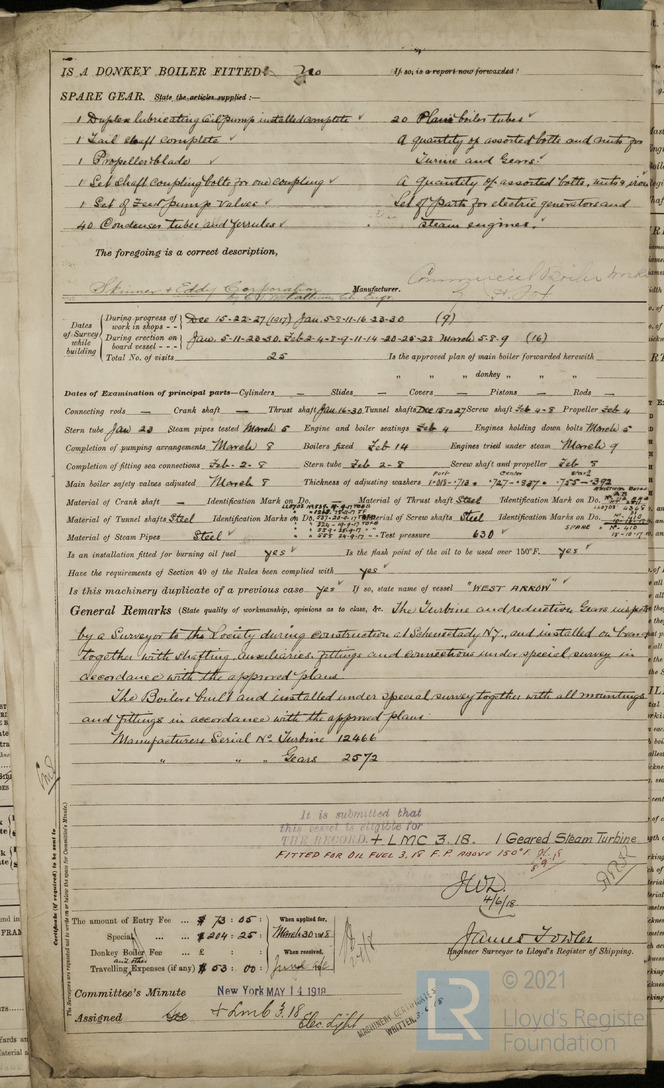 IS A DONKEY BOILER FITTED? No If so, is a report now forwarded?
SPARE GEAR. State the articles supplied :—
1 Duplex lubricating Oil pump installed complete 20 Plain boiler tubes
1 Tail shaft complete A quantity of assorted bolts and nuts for
1 Propeller blade Turbine and Gears.
1 Set shaft coupling bolts for one coupling A quantity of assorted bolts, nuts &
1 Set of Feed pump valves Set of parts for electric generators and
40 Condenser tubes and ferrules steam engines.
The foregoing is a correct description,
Commercial Boiler Works
Skinner & Eddy Corporation Manufacturer.
Dates of Survey while building
During progress of work in shops - - Dec 15-22-27 (1917) Jan. 5-8-11-16-23-30 (9)
During erection on board vessel - - - Jan. 5-11-23-30. Feb 2-4-8-9-11-14-20-25-28 March 5-8-9 (16)
Total No. of visits 25 Is the approved plan of main boiler forwarded herewith
" " " donkey " " "
Dates of Examination of principal parts—Cylinders — Slides — Covers — Pistons — Rods —
Connecting rods — Crank shaft — Thrust shaft Jan 16-30 Tunnel shafts Dec 15 to 27 Screw shaft Feb 4-8 Propeller Feb 4
Stern tube Jan 23 Steam pipes tested March 5 Engine and boiler seatings Feb 4 Engines holding down bolts March 5
Completion of pumping arrangements March 8 Boilers fixed Feb 14 Engines tried under steam March 9
Completion of fitting sea connections Feb-2-8 Stern tube Feb 2-8 Screw shaft and propeller Feb 8
Main boiler safety valves adjusted March 8 Thickness of adjusting washers
Material of Crank shaft — Identification Mark on Do. — Material of Thrust shaft Steel Identification Mark on Do.
Material of Tunnel shafts Steel Identification Marks on Do. Material of Screw shafts Steel Identification Marks on Do.
Material of Steam Pipes Steel Test pressure 630
Is an installation fitted for burning oil fuel yes Is the flash point of the oil to be used over 150°F. yes
Have the requirements of Section 49 of the Rules been complied with yes
Is this machinery duplicate of a previous case yes If so, state name of vessel "WEST ARROW"
General Remarks (State quality of workmanship, opinions as to class, &c. The Turbine and reduction Gears inspected
by a Surveyor to the Society during construction at Schenectady N.Y., and installed on board
together with shafting, auxiliaries, fittings and connections under special survey in
accordance with the approved plans
The Boilers built and installed under special survey together with all mountings
and fittings in accordance with the approved plans
Manufacturers Serial No Turbine 12466
" " " Gears 2572
It is submitted that
this vessel is eligible for
THE RECORD. + LMC 3.18. 1 Geared Steam Turbine
FITTED FOR OIL FUEL 3.18 F.P. ABOVE 150°F.
JWD.
4/6/18
Certificate (if required) to be sent to
The Surveyors are requested not to write on or below the space for Committee's Minute.
The amount of Entry Fee ... $ 73 : 05 : When applied for,
Special ... $ 204 : 25 : March 30 1918
Donkey Boiler Fee ... £ : : When received,
Travelling Expenses (if any) $ 53 : 00 :
James Fowler
Engineer Surveyor to Lloyd's Register of Shipping.
Committee's Minute New York MAY 14 1918
Assigned + LMC 3.18
Elec. Light
MACHINERY CERTIFICATE
WRITTEN
LR
© 2021
Lloyd's Register
Foundation